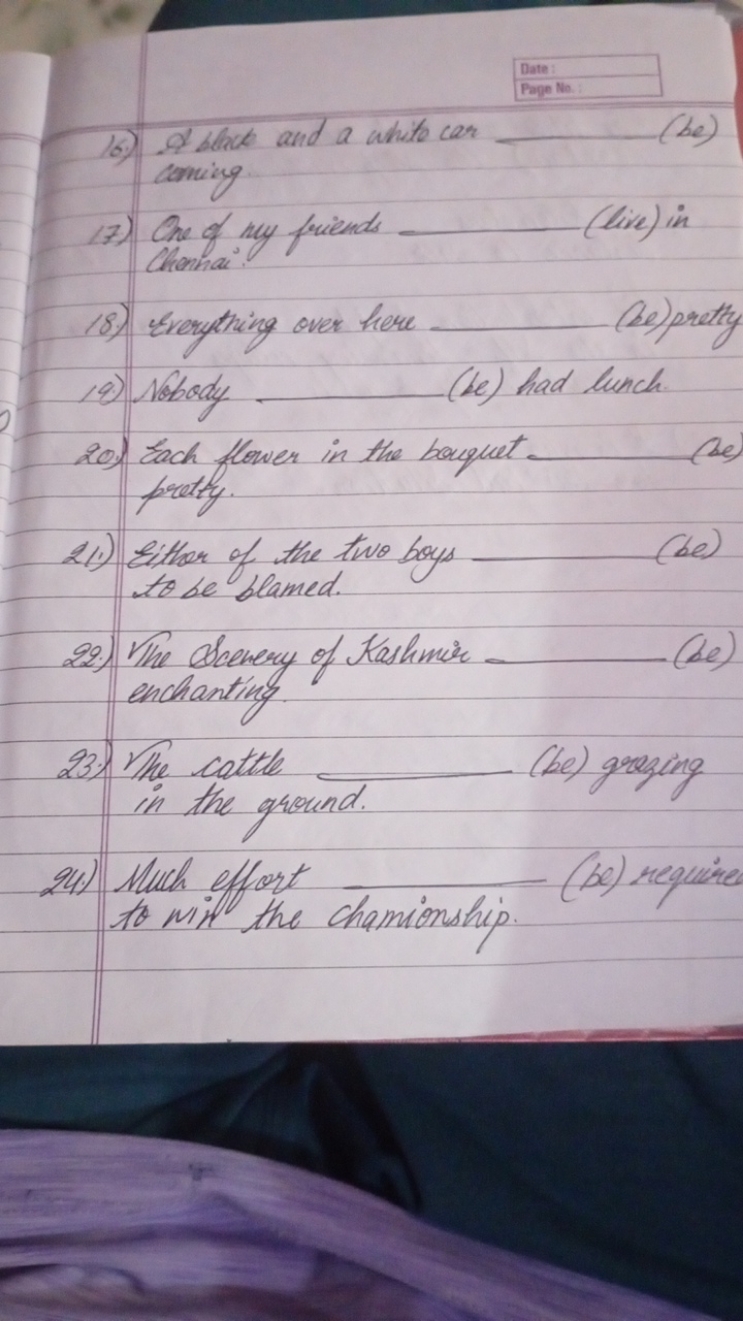 Date :
Page No. :
16.) A black and a white car ________ (be)
coming.
17.) One of my friends ________ (live) in
Chennai.
18.) Everything over here ________ (be) pretty
19.) Nobody ________ (be) had lunch.
20.) Each flower in the bouquet ________ (be)
pretty.
21.) Either of the two boys ________ (be)
to be blamed.
22.) The Scenery of Kashmir ________ (be)
enchanting.
23.) The cattle ________ (be) grazing
in the ground.
24.) Much effort ________ (be) require
to win the chamionship.